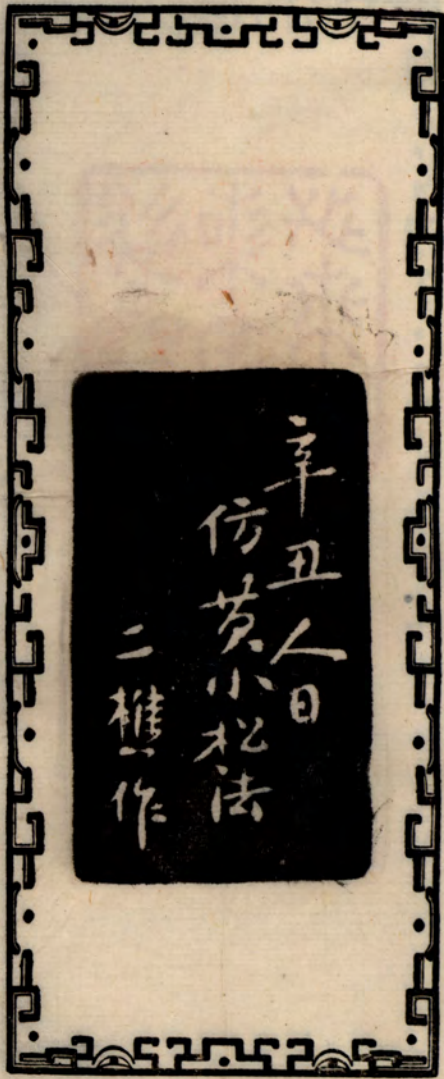 辛丑人日
仿黄小松法
二樵作